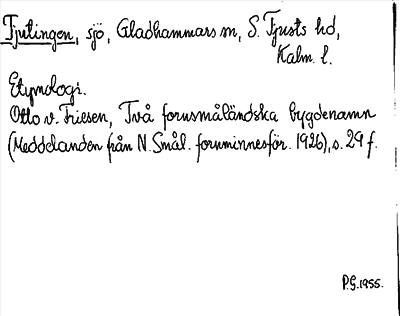 Tjutingen, sjö, Gladhammars sn, S. Tjusts hd,
Kalm. l.
Etymologi.
Otto v. Friesen, Två fornsmåländska bygdenamn
(Meddelanden från N. Smål. fornminnesför. 1926), s. 29 f.
P.G. 1955.